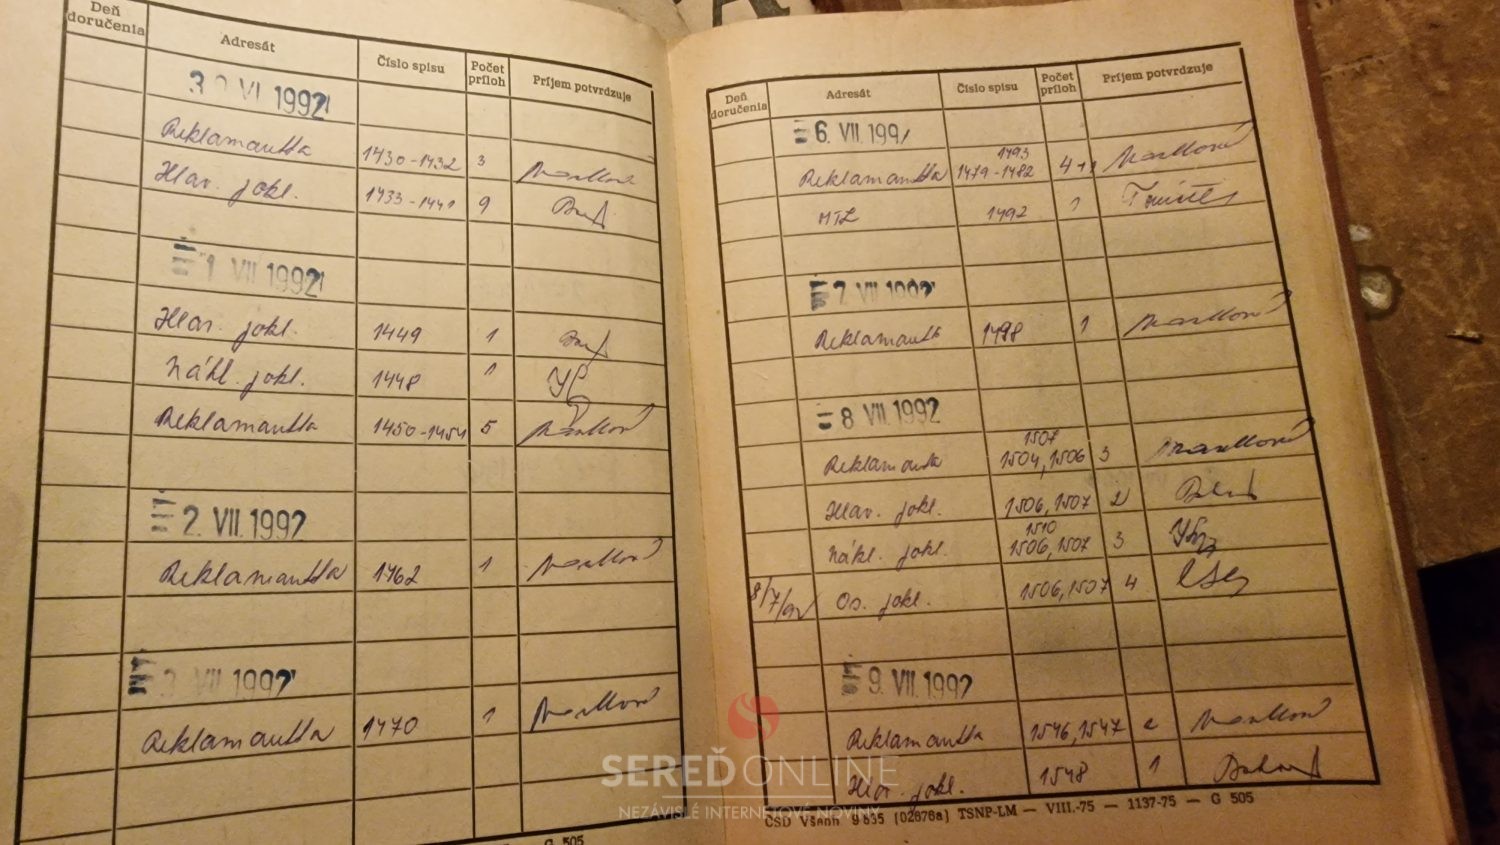 Deň doručenia Adresát Číslo spisu Počet príloh Príjem potvrdzuje
30 VI 1992
Reklamantka 1430-1432 3
Hlav. pokl. 1433-1441 9
1. VII 1992
Hlav. pokl. 1449 1
Nákl. pokl. 1448 1
Reklamantka 1450-1454 5
2. VII. 1992
Reklamantka 1462 1
3 VII 1992
Reklamantka 1470 1
G 505
Deň doručenia Adresát Číslo spisu Počet príloh Príjem potvrdzuje
6. VII. 199
1493
Reklamantka 1479-1482 4+1
MTZ 1492 1
7 VII 1992
Reklamantka 1498 1
8 VII. 1992
1507
Reklamantka 1504, 1506 3
Hlav. pokl. 1506, 1507 2
1510
Nákl. pokl. 1506, 1507 3
8/7/92 Os. pokl. 1506, 1507 4
9. VII. 1992
Reklamantka 1546, 1547 2
Hlav. pokl. 1548 1
ČSD Všeob 9 835 (02876a) TSNP-LM — VIII.-75 — 1137-75 — G 505
SEREĎONLINE
NEZÁVISLÉ INTERNETOVÉ NOVINY